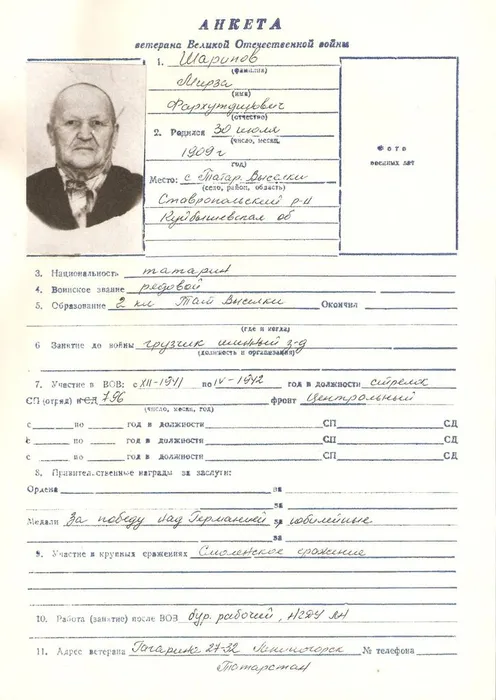 АНКЕТА
ветерана Великой Отечественной войны
1. Шарипов
(фамилия)
Мирза
(имя)
Фархутдинович
(отчество)
2. Родился 30 июля
(число, месяц,
1909 г
год)
Место: с Татар. Выселки
(село, район, область)
Ставропольский р-н
Куйбышевская об
Фото
военных лет
3. Национальность татарин
4. Воинское звание рядовой
5. Образование 2 кл Тат Выселки Окончил
(где и когда)
6 Занятие до войны грузчик з-д
(должность и организация)
7. Участие в ВОВ: с XII-1941 по IV-1942 год в должности стрелок
СП (отряд) и СД 796 фронт Центральный
(число, месяц, год)
с по год в должности СП СД
с по год в должности СП СД
с по год в должности СП СД
8. Правительственные награды за заслуги:
Ордена за
за
Медали За победу над Германией за юбилейные
за
9. Участие в крупных сражениях Смоленское сражение
10. Работа (занятие) после ВОВ бур. рабочий, НГДУ ЛН
11. Адрес ветерана Гагарина 27-32 Лениногорск № телефона
Татарстан